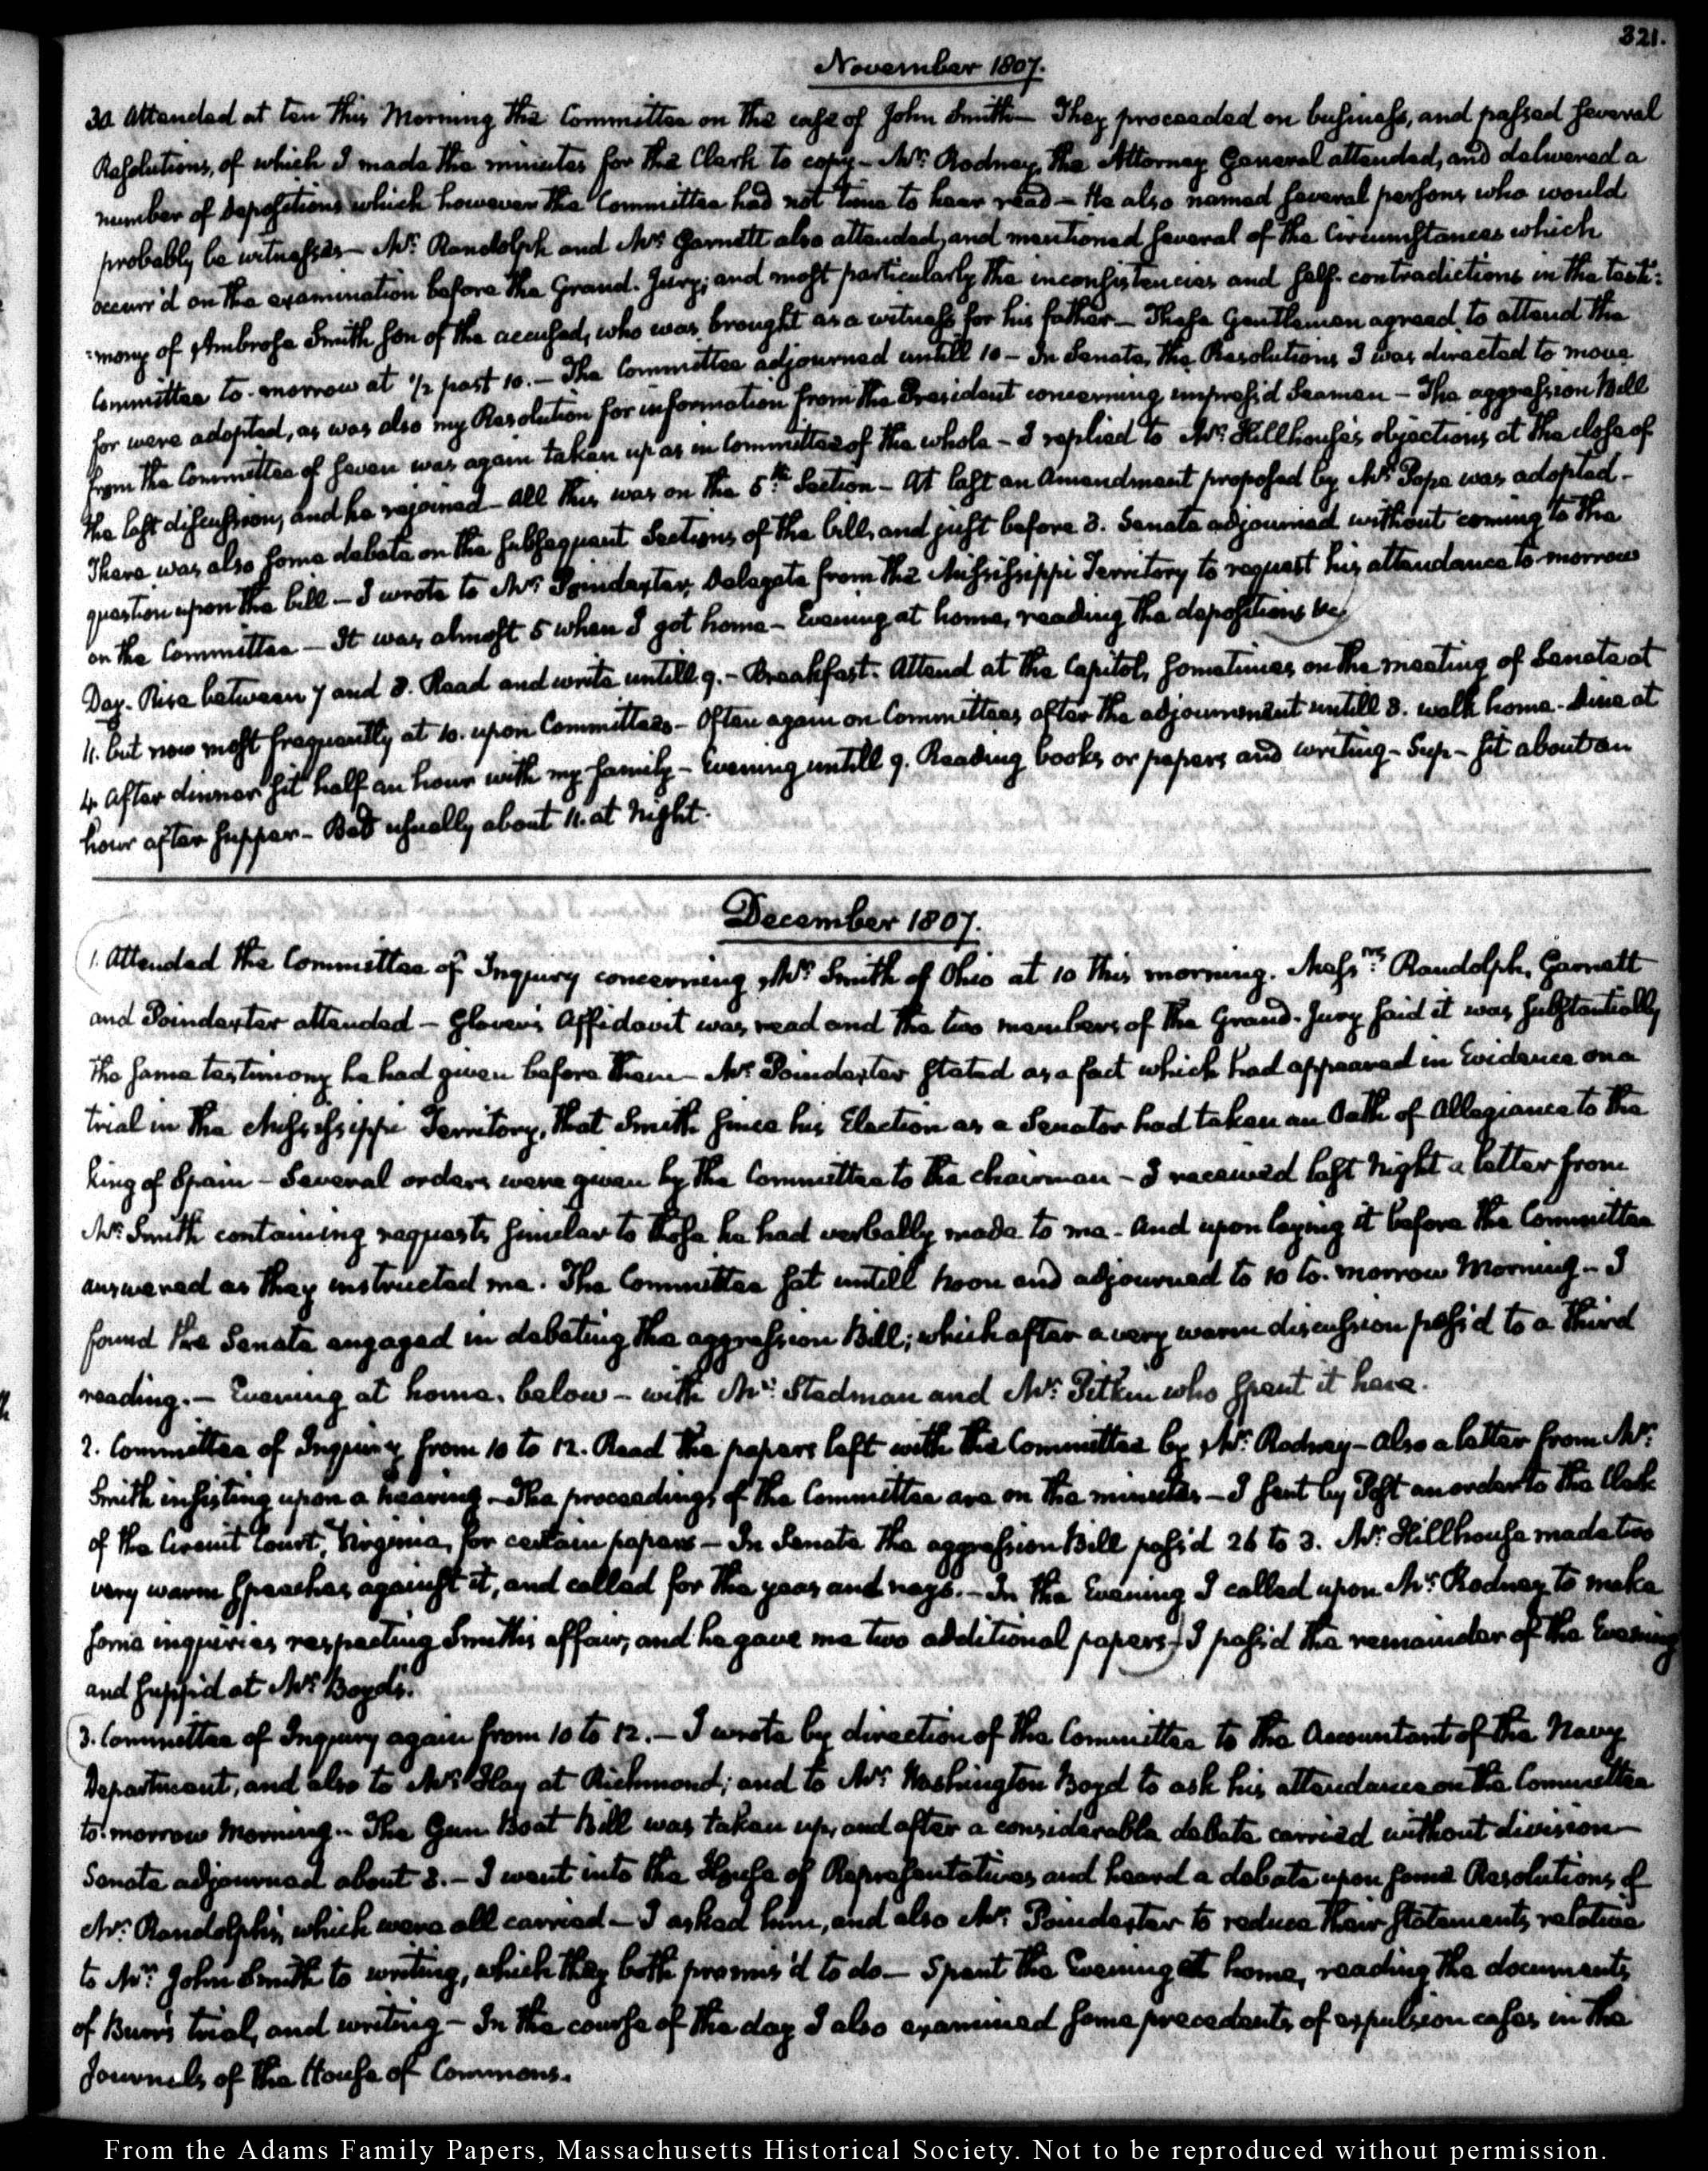 321.
November 1807.
30. Attended at ten this Morning the Committee on the case of John Smith — They proceeded on business, and passed several
Resolutions, of which I made the minutes for the Clerk to copy — Mr. Rodney, the Attorney General attended, and delivered a
number of depositions which however the Committee had not time to hear read — He also named several persons who would
probably be witnesses — Mr. Randolph and Mr. Garnett also attended, and mentioned several of the Circumstances which
occurr'd on the examination before the Grand-Jury; and most particularly the inconsistencies and self-contradictions in the testi:
:mony of Ambrose Smith son of the accused, who was brought as a witness for his father — These Gentlemen agreed to attend the
Committee to-morrow at ½ past 10. — The Committee adjourned untill 10 — In Senate, the Resolutions I was directed to move
for were adopted, as was also my Resolution for information from the President concerning impress'd Seamen — The aggression Bill
from the Committee of seven was again taken up as in Committee of the whole — I replied to Mr. Hillhouse's objections at the close of
the last discussion, and he rejoined — All this was on the 5th. Section — At last an Amendment proposed by Mr. Pope was adopted —
There was also some debate on the subsequent Sections of the bill, and just before 3. Senate adjourned without coming to the
question upon the bill — I wrote to Mr. Poindexter, Delegate from the Mississippi Territory to request his attendance to-morrow
on the Committee — It was almost 5 when I got home — Evening at home, reading the depositions &c.
Day. Rise between 7 and 8. Read and write untill 9. — Breakfast. Attend at the Capitol, sometimes on the meeting of Senate at
11. but now most frequently at 10. upon Committees — Often again on Committees after the adjournment untill 3. walk home. Dine at
4. After dinner sit half an hour with my family — Evening untill 9. Reading books or papers and writing — Sup — sit about an
hour after supper — Bed usually about 11. at Night.
December 1807.
1. Attended the Committee of Inquiry concerning Mr. Smith of Ohio at 10 this morning. Messrs. Randolph, Garnett
and Poindexter attended — Glover's Affidavit was read and the two members of the Grand-Jury said it was substantially
the same testimony he had given before them — Mr. Poindexter stated as a fact which had appeared in Evidence on a
trial in the Mississippi Territory, that Smith since his Election as a Senator had taken an Oath of Allegiance to the
King of Spain — Several orders were given by the Committee to the chairman — I received last Night a letter from
Mr. Smith containing requests similar to those he had verbally made to me — And upon laying it before the Committee
answered as they instructed me. The Committee sat untill Noon and adjourned to 10 to-morrow Morning — I
found the Senate engaged in debating the aggression Bill; which after a very warm discussion pass'd to a third
reading. — Evening at home, below — with Mr. Stedman and Mr. Pitkin who spent it here.
2. Committee of Inquiry from 10 to 12. Read the papers left with the Committee by Mr. Rodney — Also a letter from Mr.
Smith insisting upon a hearing — The proceedings of the Committee are on the minutes — I sent by Post an order to the Clerk
of the Circuit Court, Virginia, for certain papers — In Senate the aggression Bill pass'd 26 to 3. Mr. Hillhouse made two
very warm speeches against it, and called for the yeas and nays. — In the Evening I called upon Mr. Rodney to make
some inquiries respecting Smith's affair, and he gave me two additional papers — I pass'd the remainder of the Evening
and supp'd at Mr. Boyd's.
3. Committee of Inquiry again from 10 to 12. — I wrote by direction of the Committee to the Accountant of the Navy
Department, and also to Mr. Hay at Richmond; and to Mr. Washington Boyd to ask his attendance on the Committee
to-morrow Morning — The Gun Boat Bill was taken up, and after a considerable debate carried without division —
Senate adjourned about 3. — I went into the House of Representatives and heard a debate upon some Resolutions of
Mr. Randolph's, which were all carried — I asked him, and also Mr. Poindexter to reduce their statements relative
to Mr. John Smith to writing, which they both promis'd to do — Spent the Evening at home, reading the documents
of Burr's trial, and writing — In the course of the day I also examined some precedents of expulsion cases in the
Journals of the House of Commons.
From the Adams Family Papers, Massachusetts Historical Society. Not to be reproduced without permission.